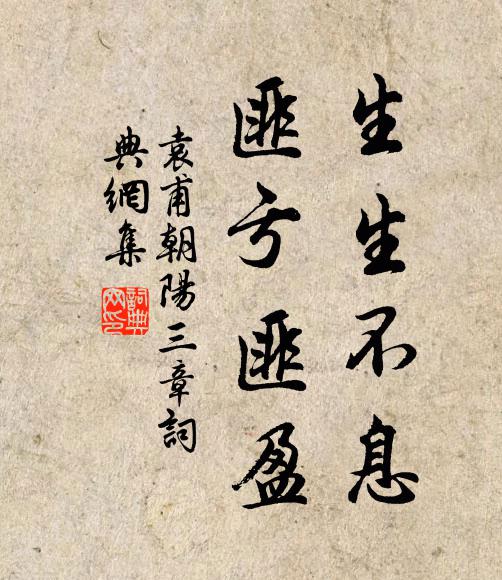 生生不息
匪亏匪盈
袁甫朝陽三章詞
典網集
詞典网印